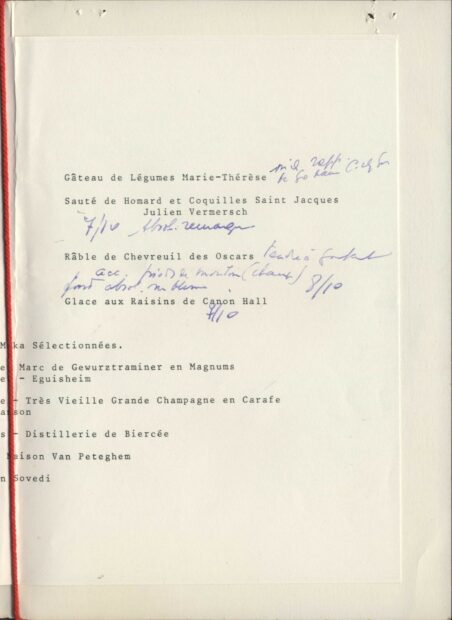 Gâteau de Légumes Marie-Thérèse
Sauté de Homard et Coquilles Saint Jacques
Julien Vermersch
7/10 Absol. remarq
Râble de Chevreuil des Oscars
acc. pieds de mouton (champ)
8/10
Glace aux Raisins de Canon Hall
7/10
Mka Sélectionnées.
e Marc de Gewurztraminer en Magnums
e - Eguisheim
e - Très Vieille Grande Champagne en Carafe
anson
s - Distillerie de Biercée
Maison Van Peteghem
n Sovedi